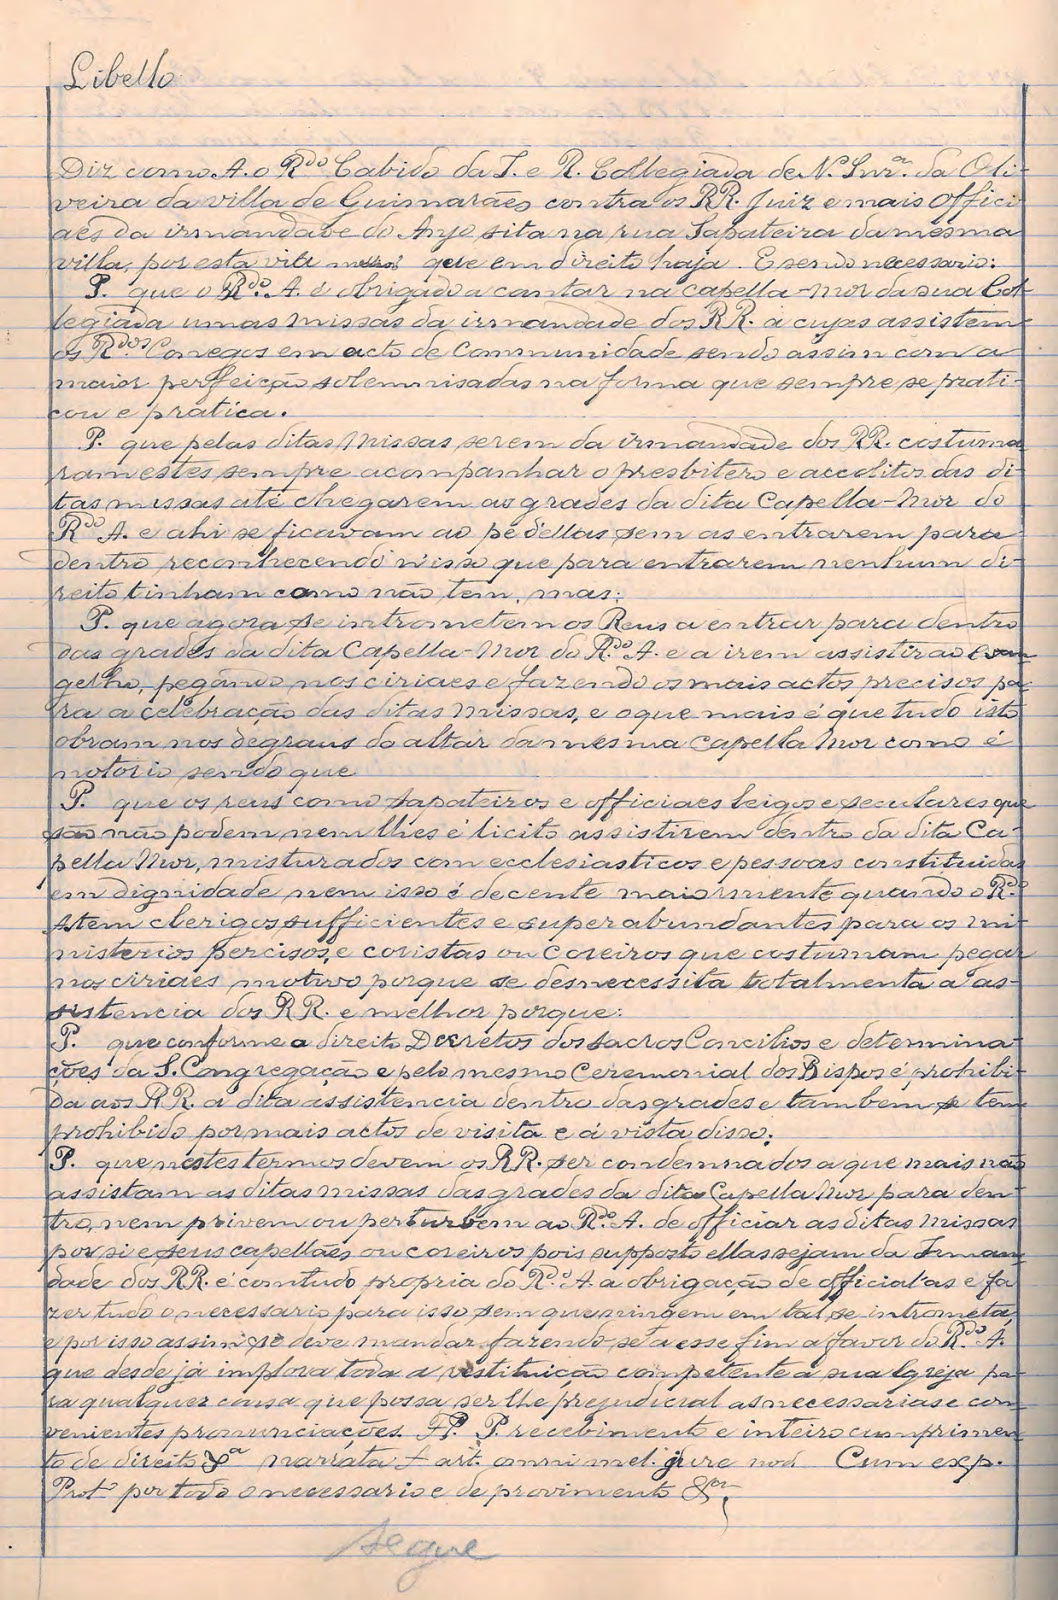 Libello
Diz como A. o Rdo Cabido da I. e R. Collegiada de N. Snra. da Oli-
veira da villa de Guimarães contra os RR. Juiz e mais offici-
aes da irmandade do Anjo sita na rua Sapateira da mesma
villa, por esta via que em direito haja. E sendo necessario:
P. que o Rdo. A. é obrigado a cantar na capella-Mor da sua Col-
legiada umas missas da irmandade dos RR. a cujas assistem
os Rdos Conegos em acto de Communidade sendo assim com a
maior perfeição solemnisadas na forma que sempre se prati-
cou e pratica.
P. que pelas ditas missas serem da irmandade dos RR. costuma
ram estes sempre acompanhar o presbitero e accolitos das di-
tas missas até chegarem as grades da dita Capella-Mor do
Rdo A. e ahi se ficavam ao pé dellas sem as entrarem para
dentro reconhecendo n'isso que para entrarem nenhum di-
reito tinham como não tem, mas:
P. que agora se intrometem os Reus a entrar para dentro
das grades da dita Capella-Mor do Rdo. A. e a irem assistir ao Evan
gelho, pegando nos ciriaes e fazendo os mais actos precisos pa-
ra a celebração das ditas missas, e o que mais é que tudo isto
obram nos degraus do altar da mesma Capella Mor como é
notorio sendo que
P. que os reus como sapateiros e officiaes leigos e seculares que
são não podem nem lhes é licito assistirem dentro da dita Ca-
pella Mor, misturados com ecclesiasticos e pessoas constituidas
em dignidade nem isso é decente maiormente quando o Rdo
A tem clerigos sufficientes e superabundantes para os mi-
nisterios percisos, e coristas ou coreiros que costumam pegar
nos ciriaes motivo porque se desnecessita totalmenta a as-
sistencia dos RR. e melhor porque:
P. que conforme a direito Decretos dos Sacros Concilios e determina-
ções da S. Congregação e pelo mesmo Ceremonial dos Bispos é prohibi-
da aos RR. a dita assistencia dentro das grades e tambem se tem
prohibido por mais actos de visita e á vista disso;
P. que nestes termos devem os RR. ser condemnados a que mais não
assistam as ditas missas das grades da dita Capella Mor para den-
tro, nem privem ou perturbem ao Rdo. A. de officiar as ditas missas
por si e seus capellães ou coreiros pois supposto ellas sejam da Irman
dade dos RR. é comtudo propria do Rdo. A a obrigação de official'as e fa
zer tudo o necessario para isso sem que ningem em tal se intrometa,
e por isso assim se deve mandar fazendo-se a esse fim a favor do Rdo. A.
que desde já implora toda a restituição competente á sua Igreja pa-
ra qualquer cousa que possa ser lhe prejudicial as necessarias e con
venientes pronunciações. FP. P. recebimento e inteiro cumprimen
to de direito &a narrata + art. omni mel. jure nod Cum exp.
Prot. por todo o necessario e de provimento &a
segue